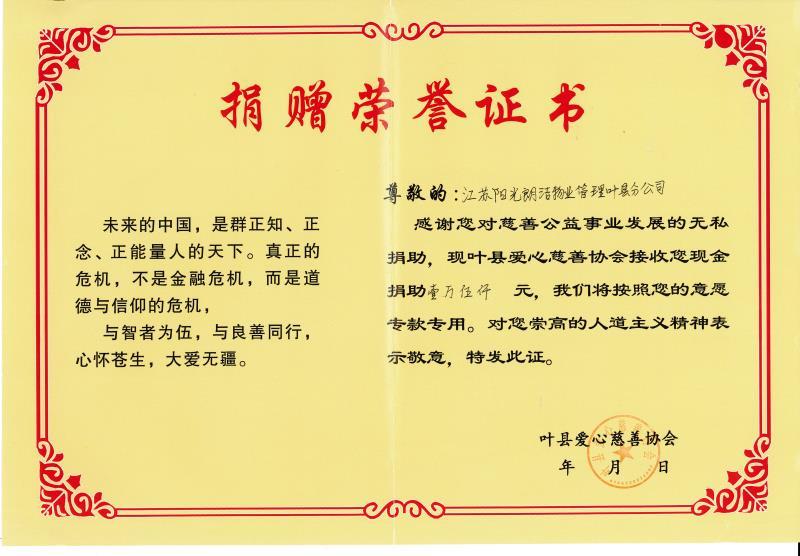 捐赠荣誉证书
未来的中国，是群正知、正
念、正能量人的天下。真正的
危机，不是金融危机，而是道
德与信仰的危机，
与智者为伍，与良善同行，
心怀苍生，大爱无疆。
尊敬的：江苏阳光朗洁物业管理叶县分公司
感谢您对慈善公益事业发展的无私
捐助，现叶县爱心慈善协会接收您现金
捐助壹万伍仟 元，我们将按照您的意愿
专款专用。对您崇高的人道主义精神表
示敬意，特发此证。
叶县爱心慈善协会
年 月 日